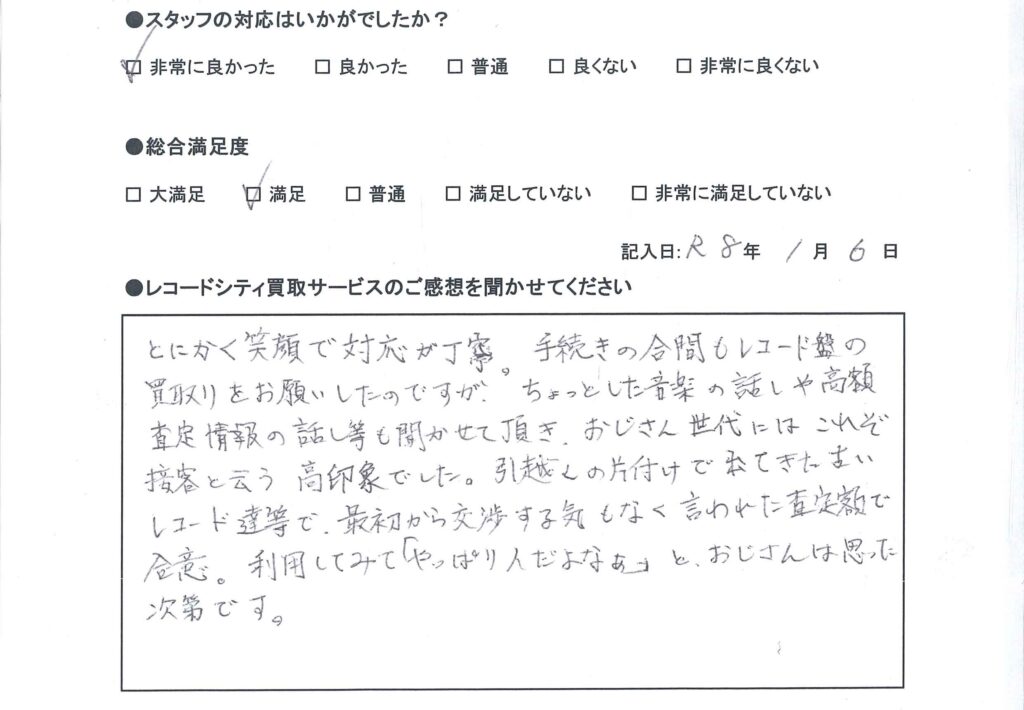 ●スタッフの対応はいかがでしたか?
☑ 非常に良かった □ 良かった □ 普通 □ 良くない □ 非常に良くない
●総合満足度
□ 大満足 ☑ 満足 □ 普通 □ 満足していない □ 非常に満足していない
記入日:R 8年 1月 6日
●レコードシティ買取サービスのご感想を聞かせてください
とにかく笑顔で対応が丁寧。手続きの合間もレコード盤の
買取りをお願いしたのですが、ちょっとした音楽の話しや高額
査定情報の話し等も聞かせて頂き、おじさん世代にはこれぞ
接客と云う 高印象でした。引越しの片付けで出てきた古い
レコード達等で、最初から交渉する気もなく言われた査定額で
合意。利用してみて「やっぱり人だよなぁ」と、おじさんは思った
次第です。